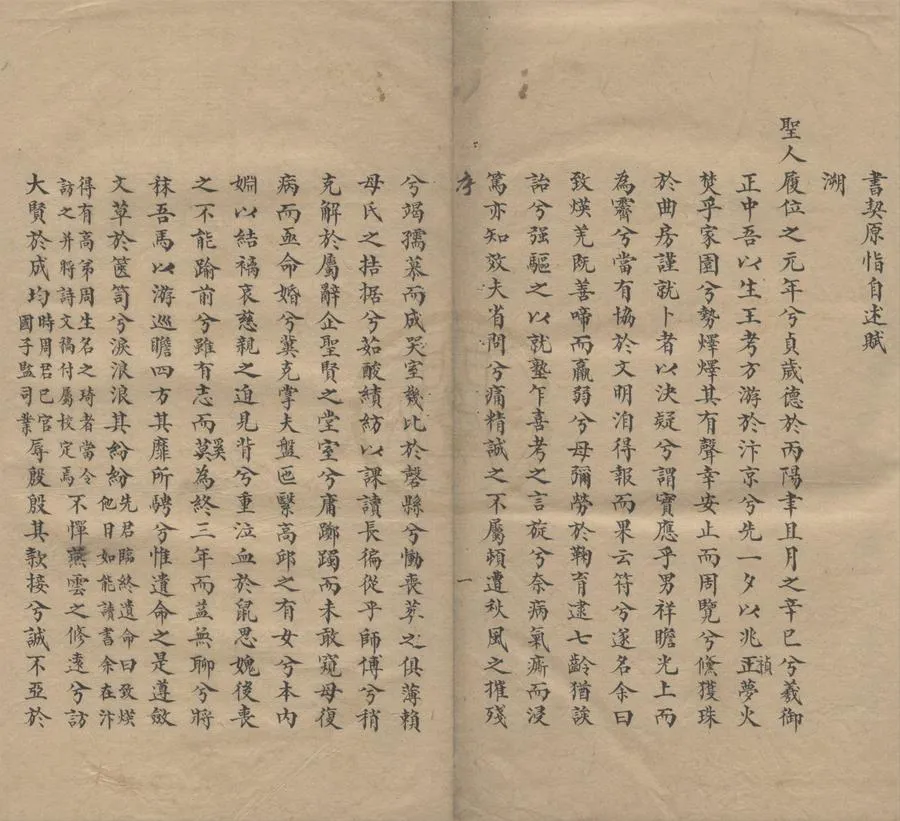 書契原恉自述賦
溯
聖人履位之元年兮貞歲德於丙陽聿且月之辛巳兮羲御
正中吾以生王考方游於汴京兮先一夕以兆正禎夢火
焚乎家園兮勢燡燡其有聲幸安止而周覽兮儵獲珠
於曲房謹就卜者以決疑兮謂寶應乎男祥瞻光上而
為霽兮當有協於文明洎得報而果云符兮遂名余曰
致煐羌既善啼而羸弱兮母彌勞於鞠育逮七齡猶誒
詒兮强驅之以就塾乍喜考之言旋兮奈病氣瘚而浸
篤亦知效夫省問兮痛精誠之不屬頓遭秋風之摧殘
序
一
兮竭孺慕而成哭室幾比於磬縣兮慟喪葬之俱薄賴
母氏之拮据兮茹酸績紡以課讀長徧從乎師傅兮稍
克解於屬辭企聖賢之堂室兮庸躑躅而未敢窺母復
病而亟命婚兮冀克掌夫盤匜繫高邱之有女兮本內
婣以結褵哀慈親之迫見背兮重泣血於鼠思媿後喪
之不能踰前兮雖有志而莫奚為終三年而益無聊兮將
秣吾馬以游巡瞻四方其靡所騁兮惟遺命之是遵斂
文草於篋笥兮淚浪浪其紛紛先君臨終遺命曰致煐他日如能讀書余在汴
得有高弟周生名之琦者當令訪之并將詩文稿付屬校定焉不憚燕雲之修遠兮訪
大賢於成均時周君已官國子監司業辱殷殷其欵接兮誠不亞於